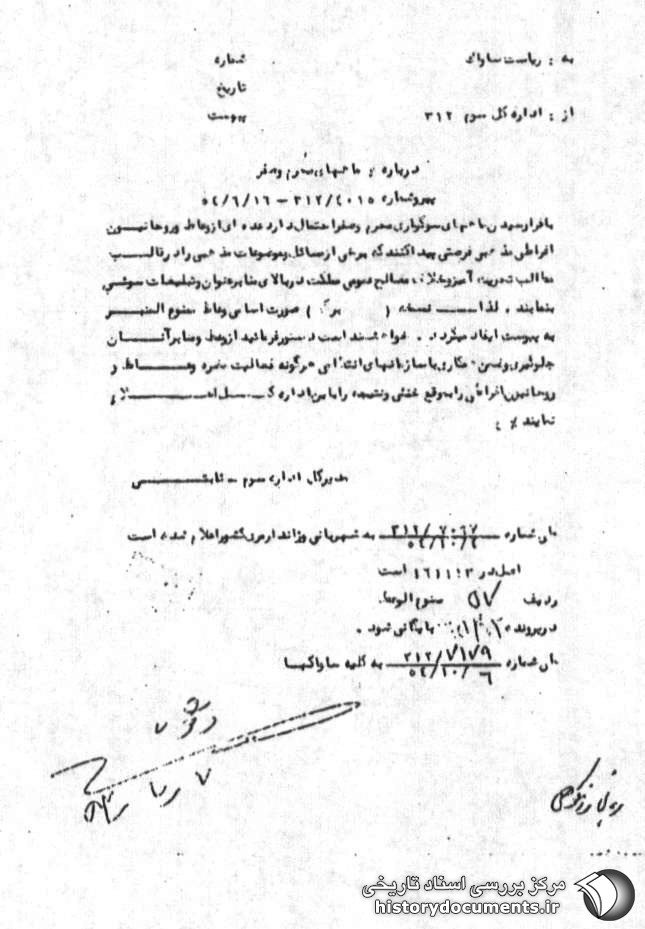 به : ریاست ساواک
شماره
تاریخ
از : اداره کل سوم ۳۱۲
پیوست
درباره : ماههای محرم و صفر
پیرو شماره ۳۱۲/۴۰۱۵ – ۵۴/۶/۱۶
با فرارسیدن ماههای سوگواری محرم و صفر احتمال دارد عده ای از وعاظ و روحانیون
افراطی مذهبی فرصتی پیدا کنند که برخی از مسائل و موضوعات مذهبی را در قالب
مطالب تحریک آمیز و خلاف مصالح عمومی مملکت در بالای منابر عنوان و تبلیغات سوئی
بنمایند . لذا نسخه ( برگ ) صورت اسامی وعاظ ممنوع المنبر
به پیوست ایفاد میگردد . خواهشمند است دستور فرمائید از وعظ و منابر آنان
جلوگیری و ضمن همکاری با سازمانهای انتظامی هرگونه فعالیت مضره وعاظ و
روحانیون افراطی را به موقع خنثی و نتیجه را باین اداره کل اعلام
نمایند
مدیرکل اداره سوم – ثابتی
طی شماره ۳۱۲/۷۰۶۷ به شهربانی و ژاندارمری کشور اعلام شده است
۵۴/۱۰/۴
اصل در ۱۶۱۱۰۳ است
ردیف ۵۷ ممنوع الوعظ
در پرونده بایگانی شود .
طی شماره ۳۱۲/۷۱۷۹ به کلیه ساواکها
۵۴/۱۰/۶
مرکز بررسی اسناد تاریخی
historydocuments.ir